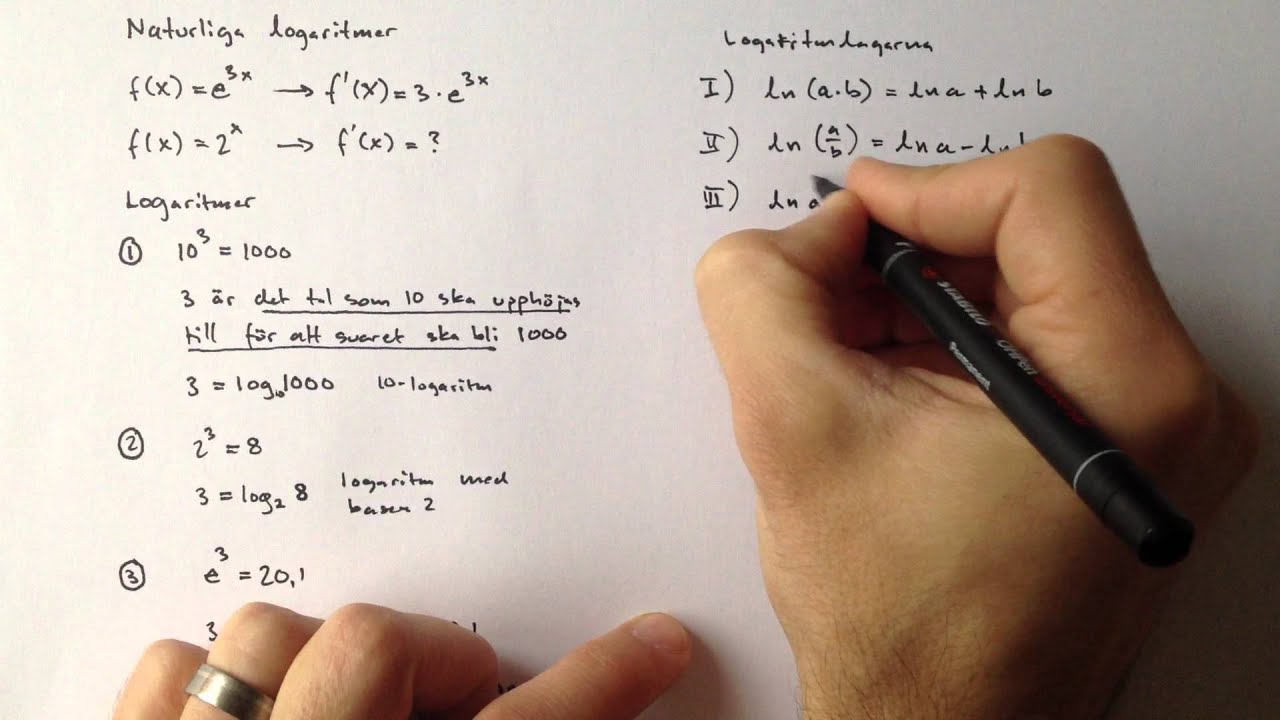 Naturliga logaritmer
f(x) = e^3x → f'(x) = 3 · e^3x
f(x) = 2^x → f'(x) = ?
Logaritmer
① 10^3 = 1000
3 är det tal som 10 ska upphöjas
till för att svaret ska bli 1000
3 = log₁₀1000 10-logaritm
② 2^3 = 8
3 = log₂ 8 logaritm med
basen 2
③ e^3 = 20,1
3
Logaritmlagarna
I) ln (a·b) = ln a + ln b
II) ln (a/b) = ln a - ln
III) ln a
STABILO
OHPen universal
permanent